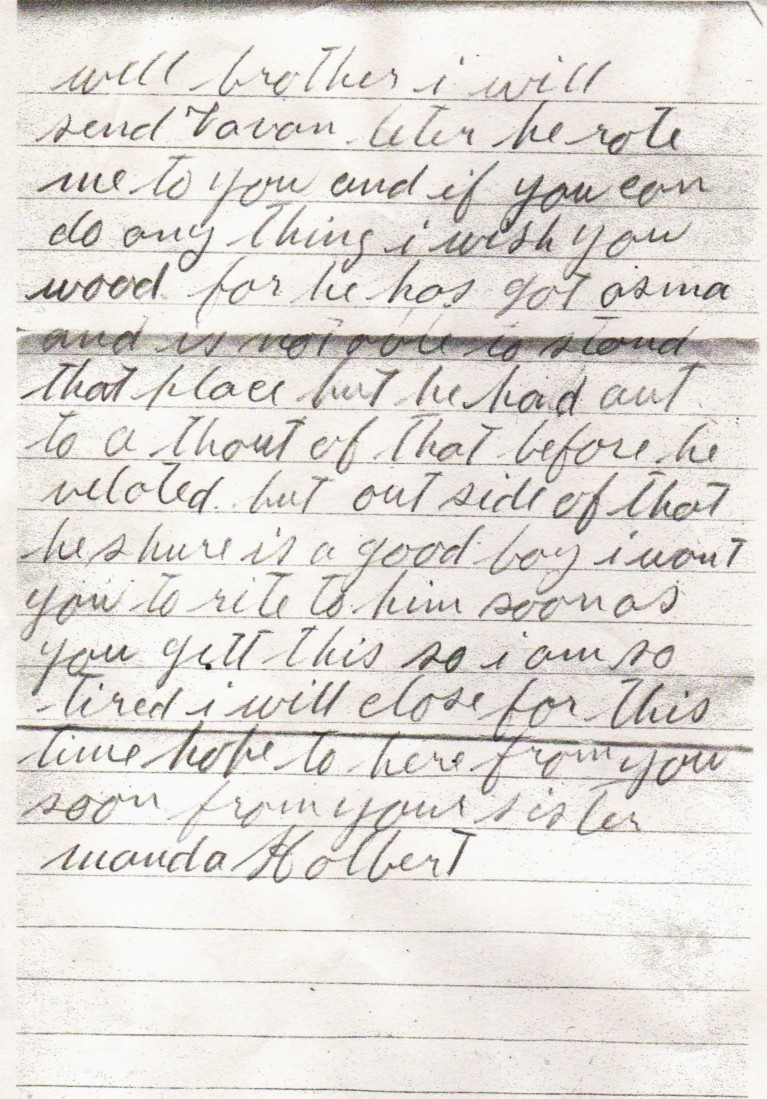 well brother i will
send Tavan leter he rote
me to you and if you can
do any thing i wish you
wood for he has got asma
and is not able to stand
that place but he had aut
to a thout of that before he
veloted but out side of that
he shure is a good boy i want
you to rite to him soon as
you gett this so i am so
tired i will close for this
time hope to here from you
soon from your sister
manda Holbert